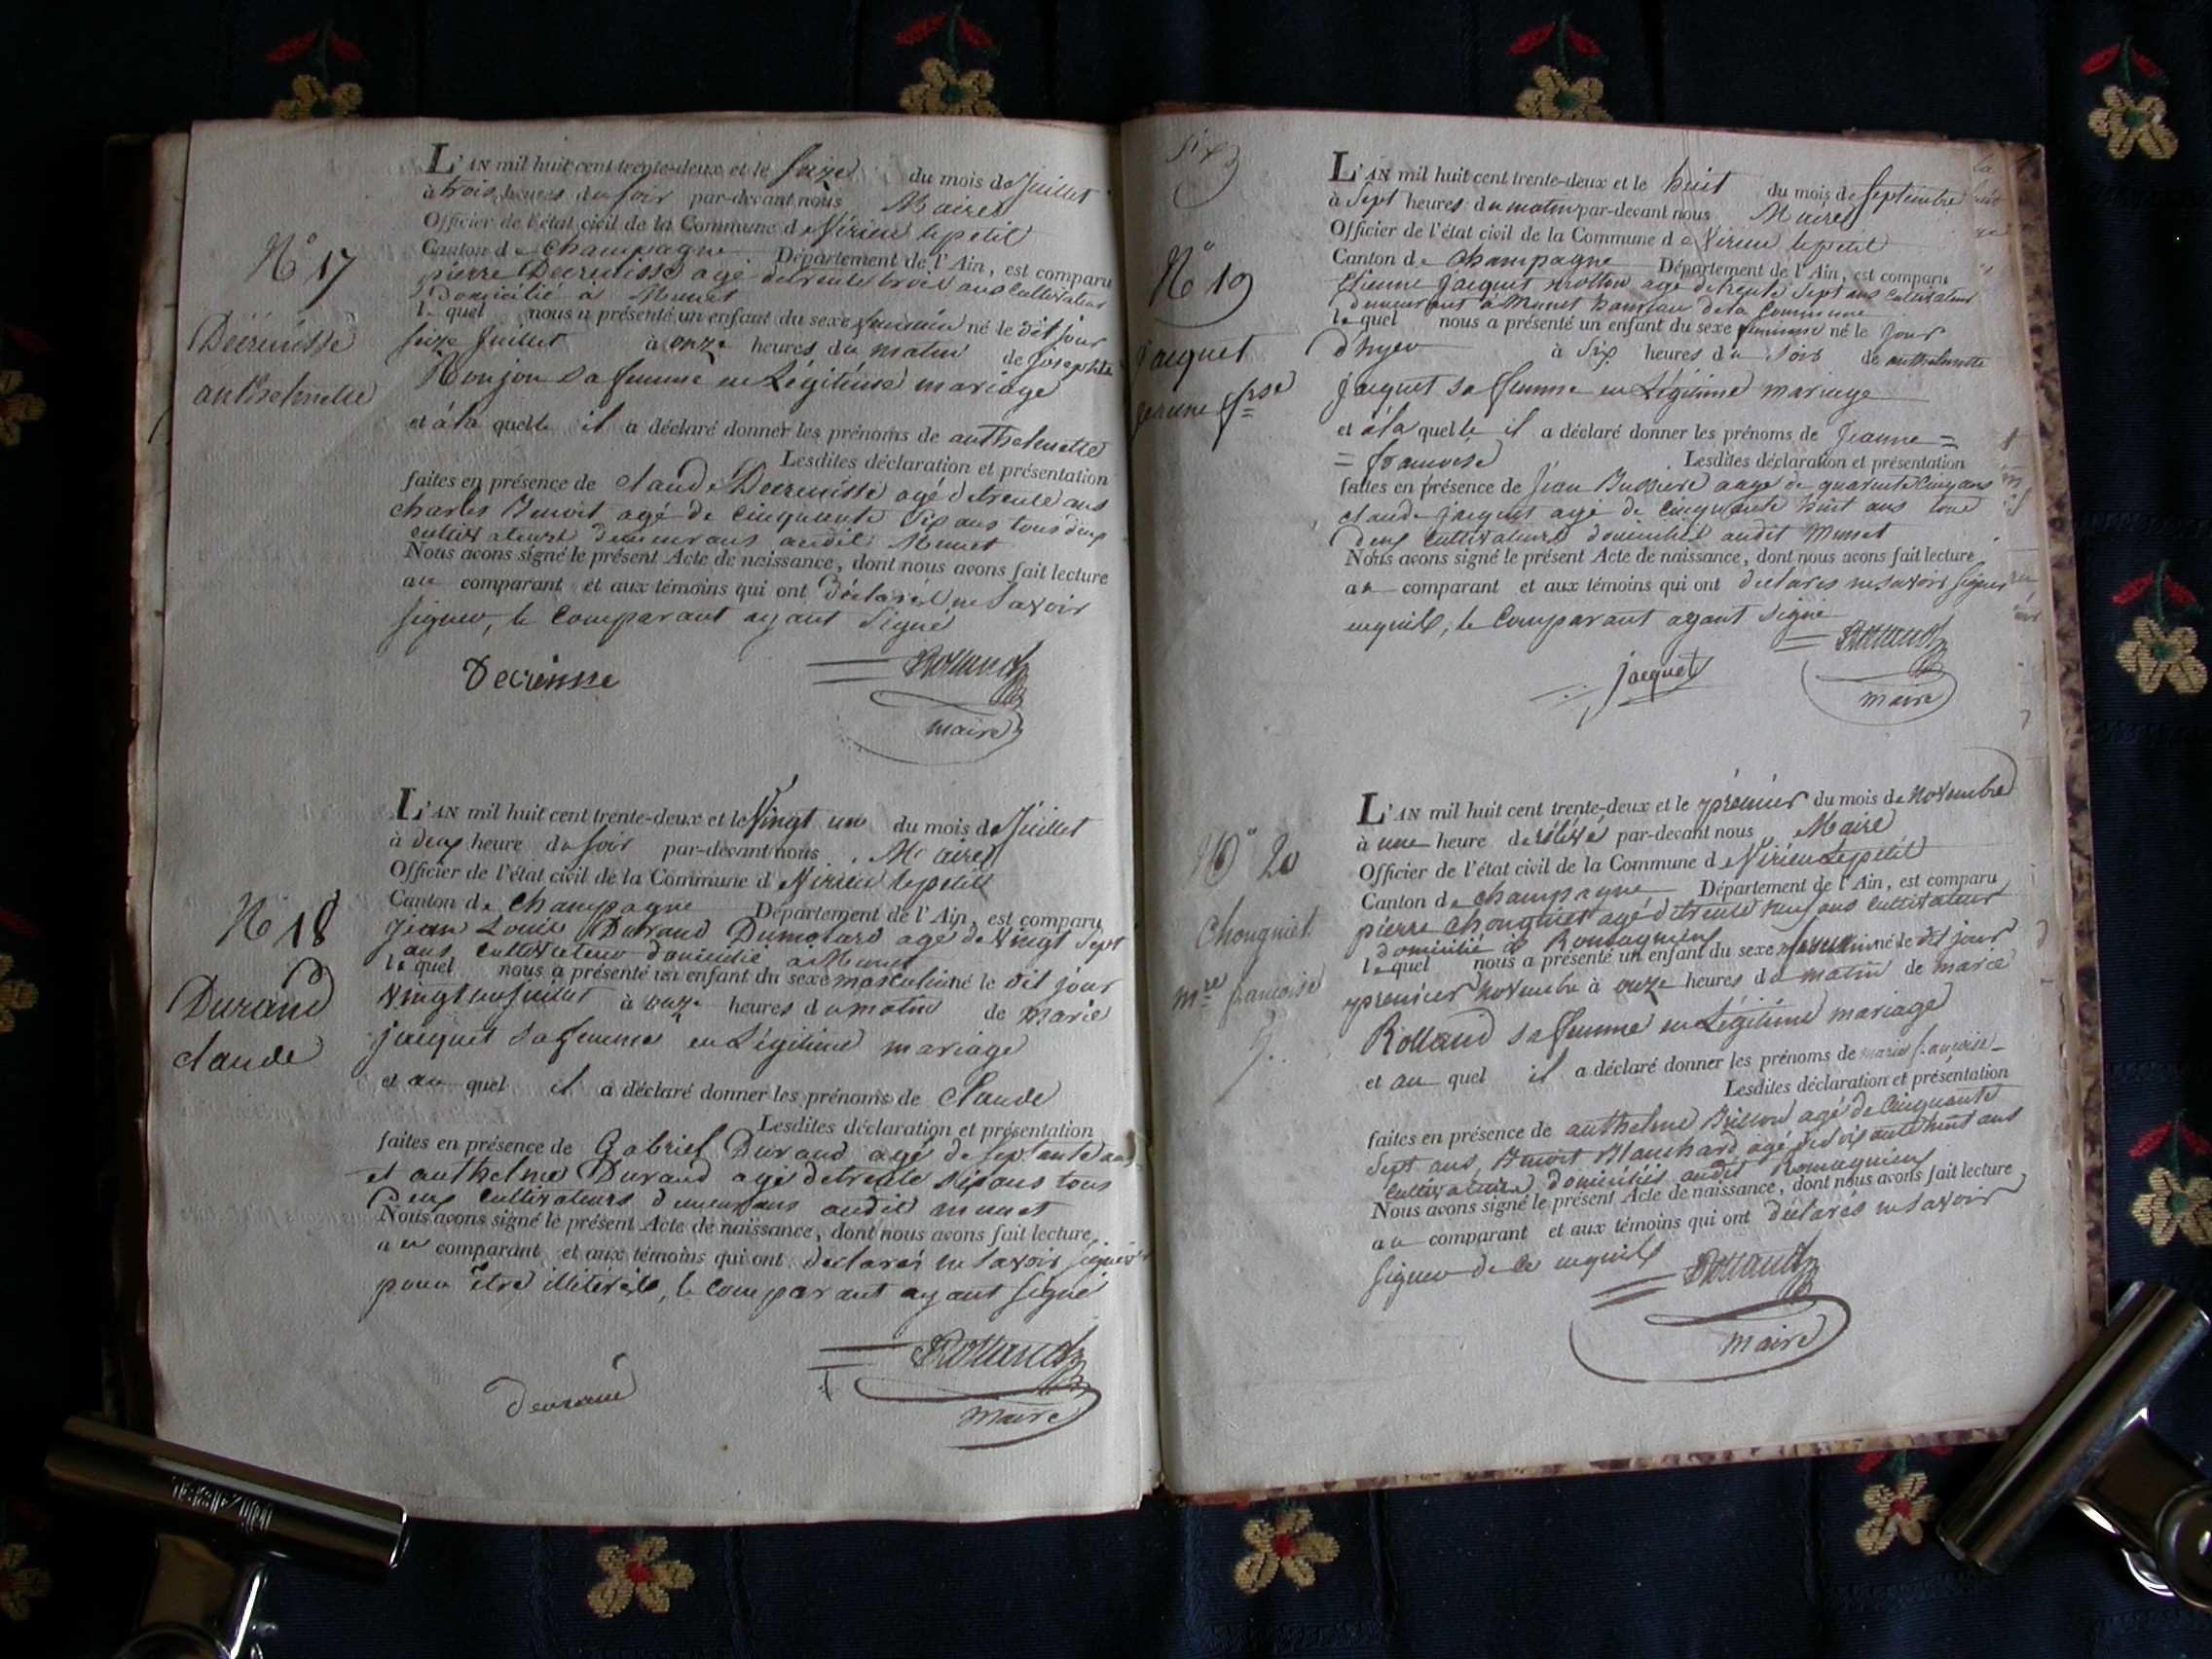 N° 17
Decrenisse
anthelmette
L'AN mil huit cent trente-deux et le seize du mois de Juillet
à trois heures du soir par-devant nous Maire
Officier de l'état civil de la Commune de Virieu le petit
Canton de Champagne Département de l'Ain, est comparu
pierre Decrenisse agé de trente trois ans cultivateur
Domicilié à Munet
lequel nous a présenté un enfant du sexe feminin né le dit jour
seize Juillet à onze heures du matin de Josephte
Monjon sa femme en Légitime mariage
et à la quelle il a déclaré donner les prénoms de anthelmette
Lesdites déclaration et présentation
faites en présence de claude Decrenisse agé de trente ans
charles Benoit agé de cinquante six ans tous deux
cultivateurs demeurans audit Munet
Nous avons signé le présent Acte de naissance, dont nous avons fait lecture
au comparant et aux témoins qui ont déclarés ne savoir
signer, le comparant ayant signé
Decrenisse
Rolland
maire
N° 18
Durand
claude
L'AN mil huit cent trente-deux et le Vingt un du mois de Juillet
à deux heure du soir par-devant nous Maire
Officier de l'état civil de la Commune de Virieu le petit
Canton de Champagne Département de l'Ain, est comparu
Jean Louis Durand Dumolard agé de vingt sept
ans cultivateur domicilié à Munet
lequel nous a présenté un enfant du sexe masculin né le dit jour
vingt un Juillet à onze heures du matin de marie
jacquet sa femme en Légitime mariage
et au quel il a déclaré donner les prénoms de Claude
Lesdites déclaration et présentation
faites en présence de Gabriel Durand agé de septante ans
et anthelme Durand agé de trente six ans tous
deux cultivateurs demeurans audit munet
Nous avons signé le présent Acte de naissance, dont nous avons fait lecture
au comparant et aux témoins qui ont declarés ne savoir signer
pour être illitérés, le comparant ayant signé
durand
Rolland
maire
six
N° 19
jacquet
jeanne fse
L'AN mil huit cent trente-deux et le huit du mois de Septembre
à Sept heures du matin par-devant nous Maire
Officier de l'état civil de la Commune de Virieu le petit
Canton de Champagne Département de l'Ain, est comparu
Etienne jacquet mollon agé de trente sept ans cultivateur
demeurant à Munet hameau de la Commune
lequel nous a présenté un enfant du sexe feminin né le jour
d'hyer à six heures du soir de anthelmette
jacquet sa femme en Légitime mariage
et à la quelle il a déclaré donner les prénoms de Jeanne =
= francoise Lesdites déclaration et présentation
faites en présence de Jean Bussiere agé de quarante cinq ans
claude jacquet agé de cinquante huit ans tous
deux cultivateurs domiciliés audit Munet
Nous avons signé le présent Acte de naissance, dont nous avons fait lecture
au comparant et aux témoins qui ont déclarés ne savoir signer
enquis, le comparant ayant signé
jacquet
Rolland
maire
N° 20
Chongniet
mie francoise
L'AN mil huit cent trente-deux et le premier du mois de novembre
à une heure de relevé par-devant nous Maire
Officier de l'état civil de la Commune de Virieu Le petit
Canton de Champagne Département de l'Ain, est comparu
pierre Chongniet agé de trente neuf ans cultivateur
domicilié à Romagnieu
lequel nous a présenté un enfant du sexe feminin né le dit jour
premier novembre à onze heures du matin de marie
Rolland sa femme en Légitime mariage
et au quel il a déclaré donner les prénoms de marie francoise
Lesdites déclaration et présentation
faites en présence de anthelme Billion agé de Cinquante
Sept ans, Benoit Blanchard agé de soixante huit ans
cultivateurs domiciliés audit Romagnieu
Nous avons signé le présent Acte de naissance, dont nous avons fait lecture
au comparant et aux témoins qui ont déclarés ne savoir
signer de ce enquis
Rolland
maire